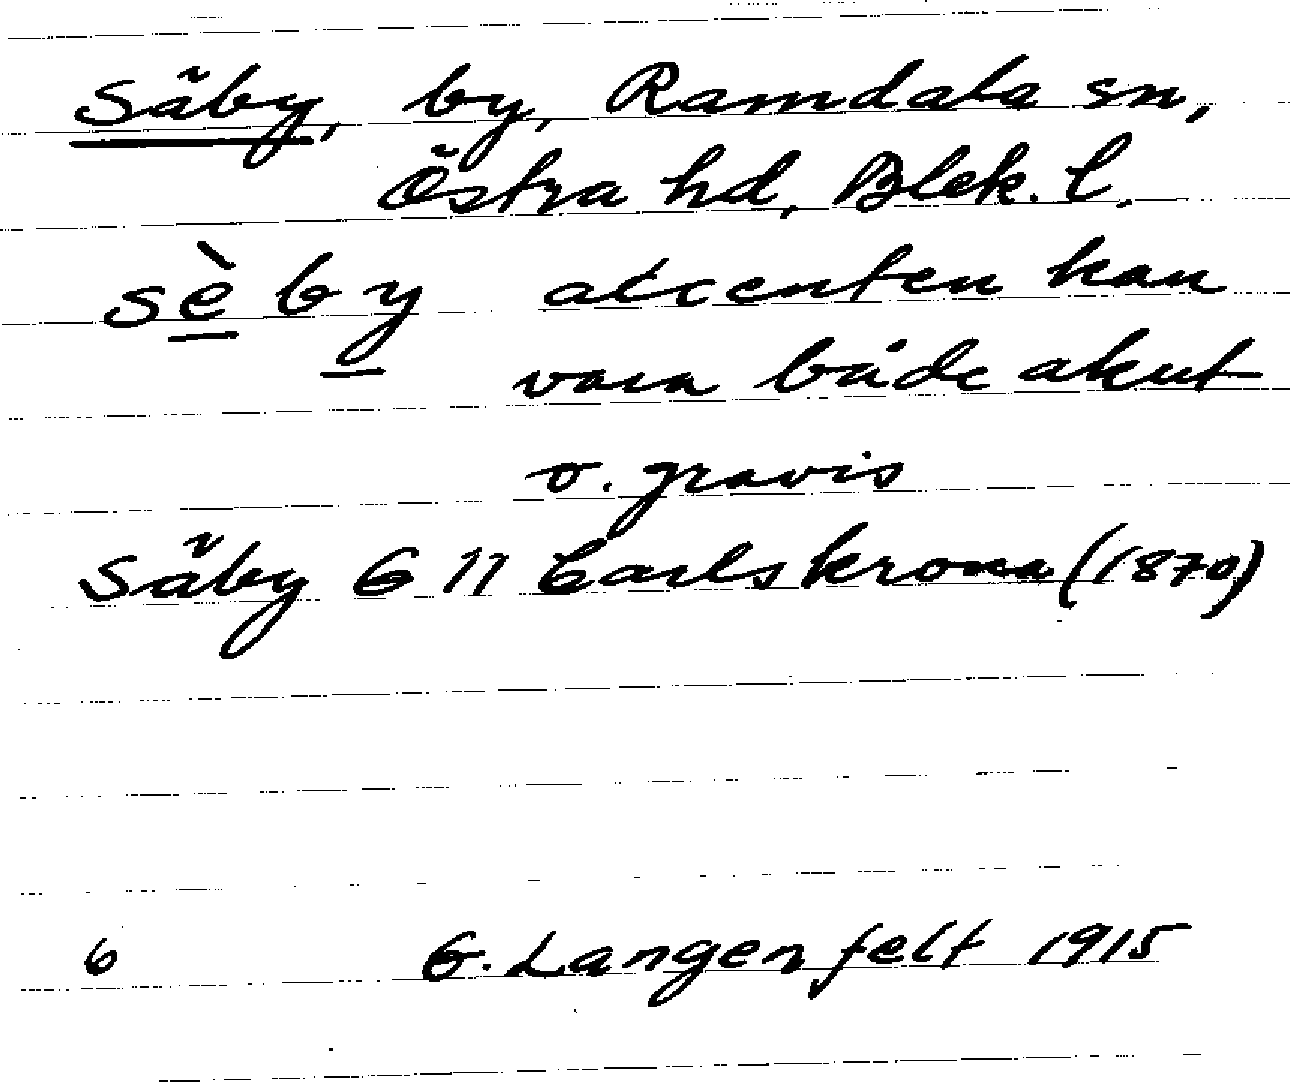 Säby, by, Ramdala sn,
Östra hd, Blek. l.
sè by accenten kan
vara både akut
o. gravis
Säby G 11 Carlskrona (1870)
6 G. Langenfelt 1915